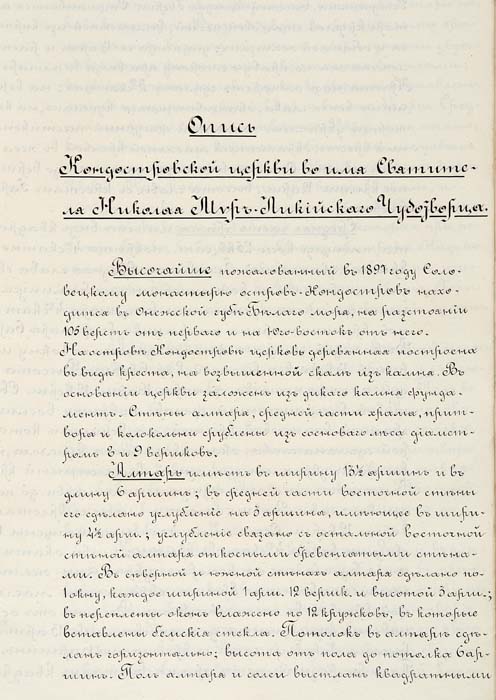 Опись
Кондостровской церкви во имя Святите-
ля Николая Мѵръ-Ликійскаго Чудотворца.
Высочайше пожалованный въ 1897 году Соло-
вецкому монастырю островъ-Кондостровъ нахо-
дится въ Онежской губѣ Бѣлаго моря, на разстояніи
105 верстъ отъ перваго и на юго-востокъ отъ него.
На островѣ Кондостровѣ церковь деревянная построена
въ видѣ креста, на возвышенной скалѣ изъ камня. Въ
основаніи церкви заложенъ изъ дикаго камня фунда-
ментъ. Стѣны алтаря, средней части храма, прит-
вора и колокольни срублены изъ сосноваго лѣса діамет-
ромъ 8 и 9 вершковъ.
Алтарь имѣетъ въ ширину 13½ аршинъ и въ
длину 6 аршинъ; въ средней части восточной стѣны
его сдѣлано углубленіе на 3 аршина, имѣющее въ шири-
ну 4½ арш.; углубленіе связано съ остальной восточной
стѣной алтаря откосными бревенчатыми стѣна-
ми. Въ сѣверной и южной стѣнахъ алтаря сдѣлано по-
1 окну, каждое шириной 1 арш. 12 вершк. и высотой 3 арш.;
въ переплеты оконъ вложено по 12 кружковъ, въ которые
вставлены бемскія стекла. Потолокъ въ алтарѣ сдѣ-
ланъ горизонтально; высота отъ пола до потолка 6 ар-
шинъ. Полъ алтаря и солеи выстланъ квадратными